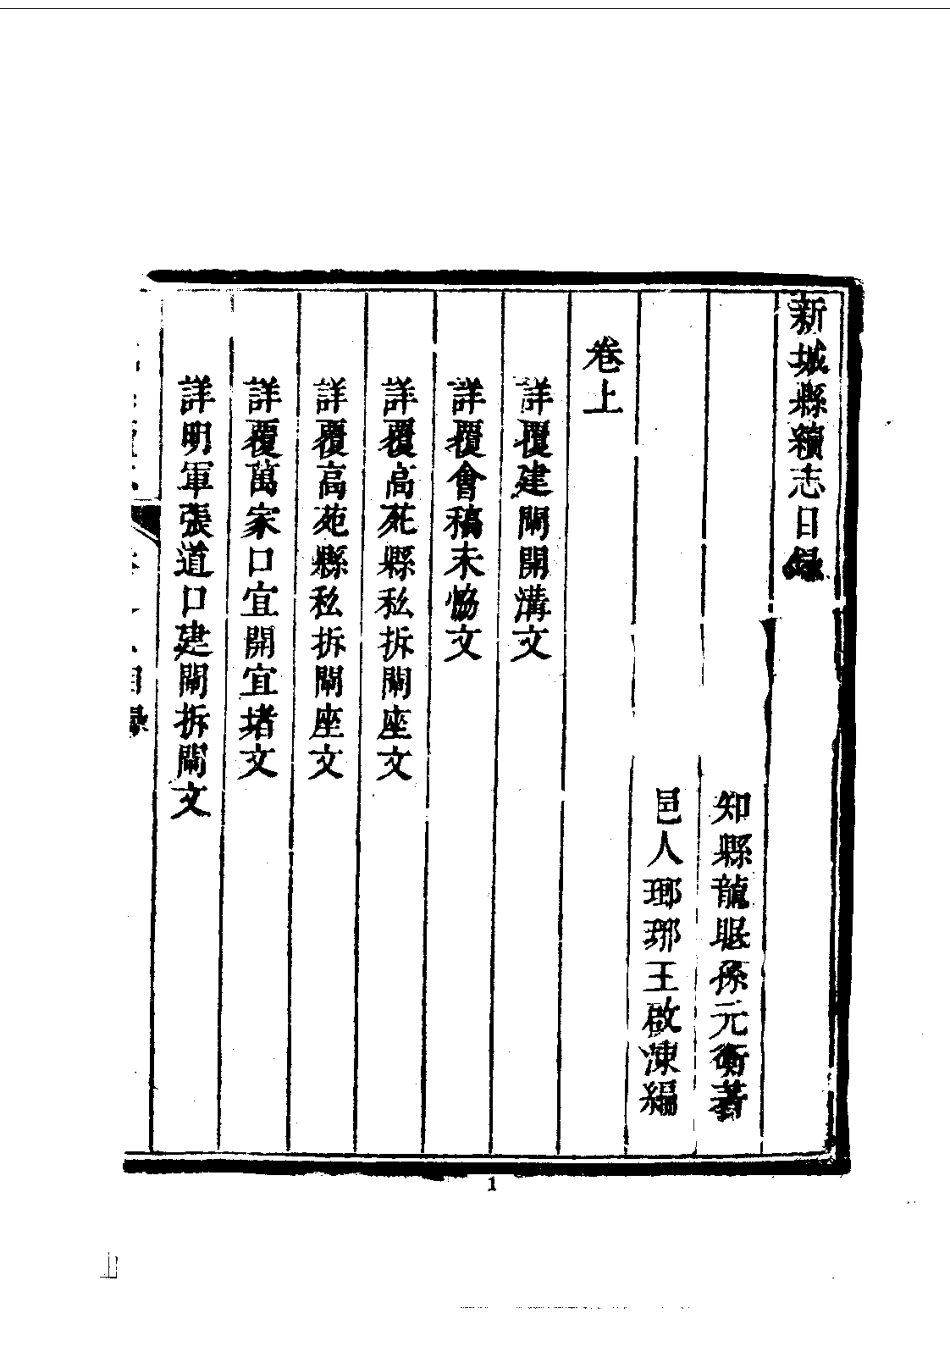 新城縣續志目録
知縣龍眠孫元衡著
邑人瑯琊王啟涑編
卷上
詳覆建閘開溝文
詳覆會稿未恊文
詳覆高苑縣私拆閘座文
詳覆高苑縣私拆閘座文
詳覆萬家口宜開宜堵文
詳明軍張道口建閘拆閘文
目録
1